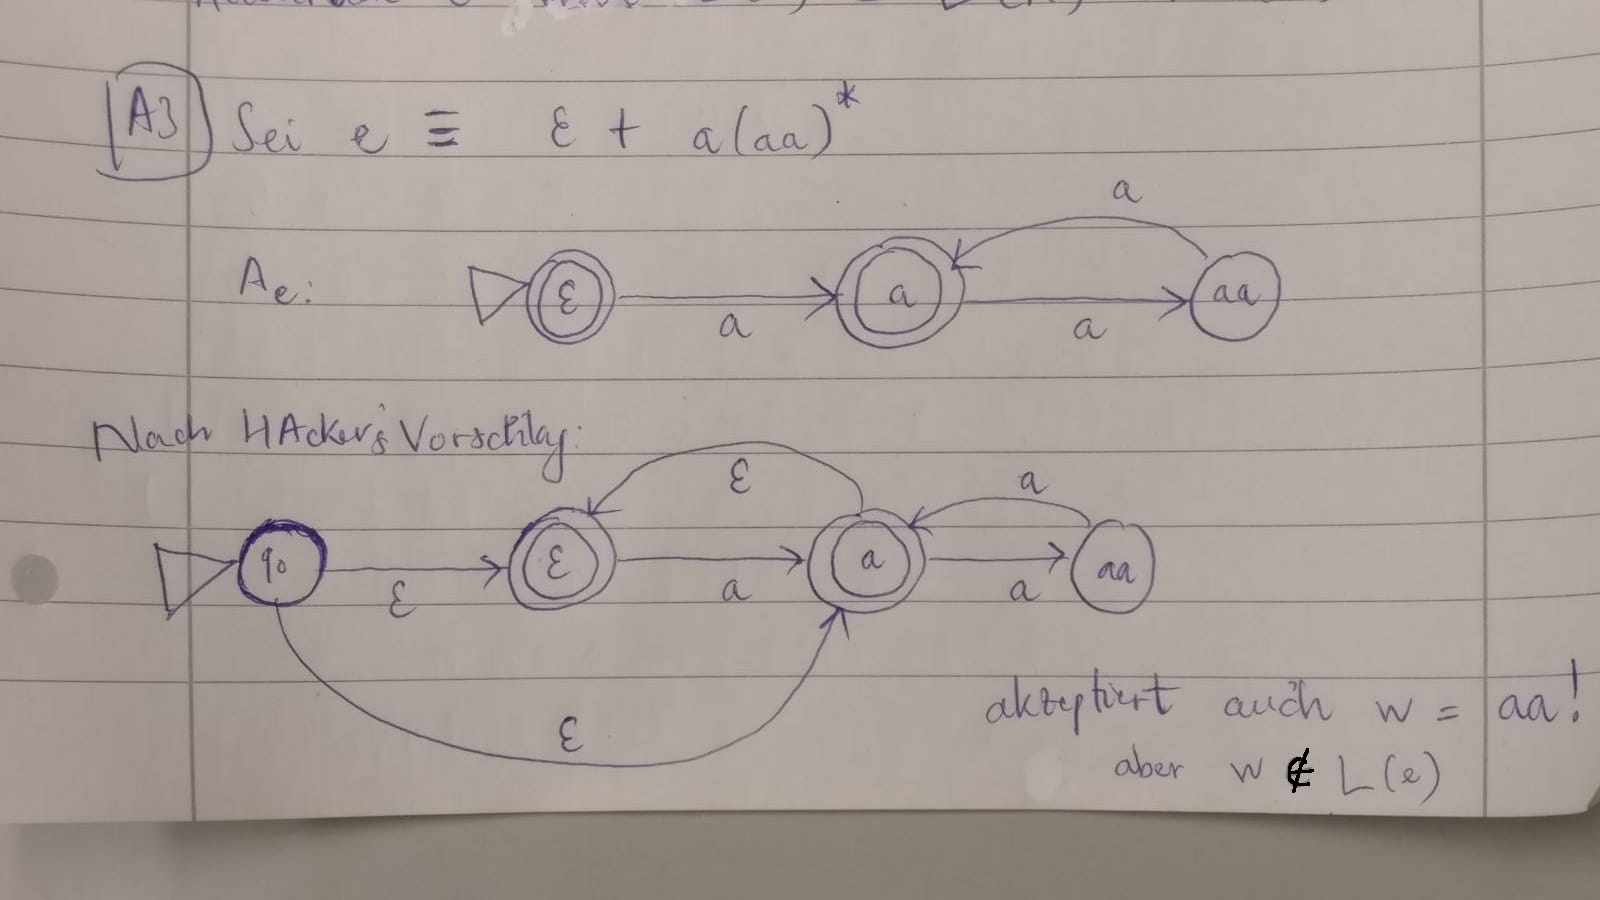 A3 Sei e ≡ ε + a(aa)*
a
Ae: ε a a a aa
Nach HAcker's Vorschlag:
ε a
q0 ε ε a a a aa
ε
akzeptiert auch w = aa!
aber w ∉ L(e)